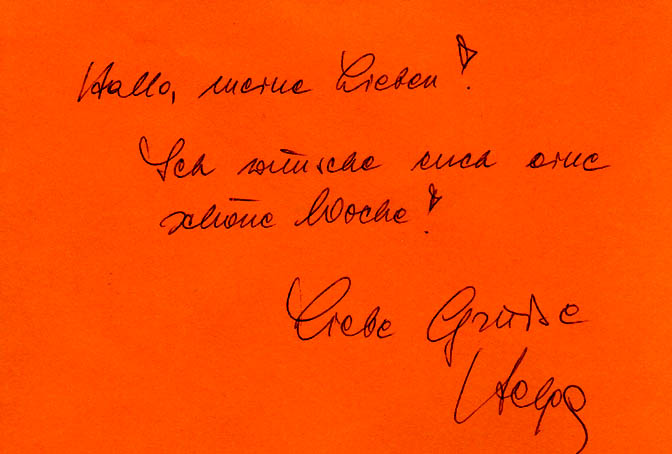 Hallo, meine Lieben!
Ich wünsche euch eine
schöne Woche!
Liebe Grüße